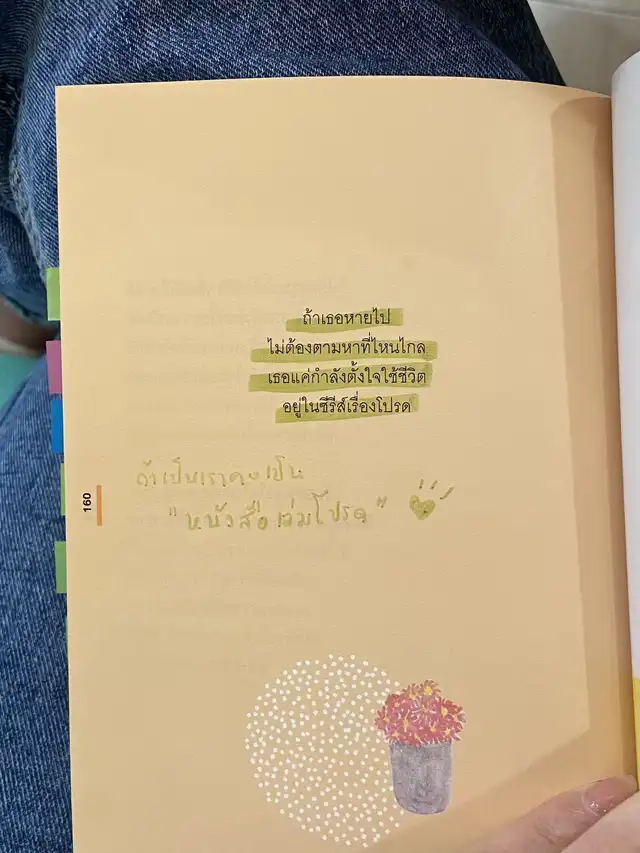 ถ้าเธอหายไป
ไม่ต้องตามหาที่ไหนไกล
เธอแค่กำลังตั้งใจใช้ชีวิต
อยู่ในซีรีส์เรื่องโปรด
ถ้าเป็นเราคงเป็น
"หนังสือเล่มโปรด"
160